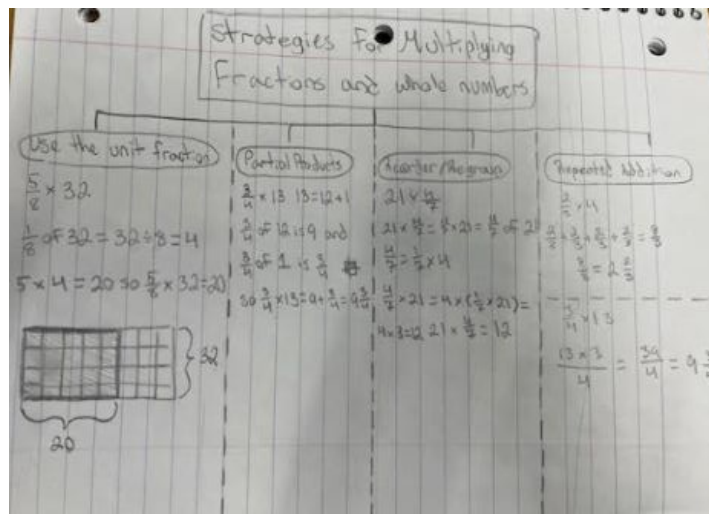 Strategies For Multiplying
Fractions and whole numbers
Use the unit fraction
5/8 × 32
1/8 of 32 = 32 ÷ 8 = 4
5 × 4 = 20 so 5/8 × 32 = 20
32
20
Partial Products
3/4 × 13 13 = 12 + 1
3/4 of 12 is 9 and
3/4 of 1 is 3/4
so 3/4 × 13 = 9 + 3/4 = 9 3/4
Reorder/Regroup
21 × 4/7
21 × 4/7 = 4/7 × 21 = 4/7 of 21
4/7 = 1/7 × 4
4/7 × 21 = 4 × (1/7 × 21) =
4 × 3 = 12 21 × 4/7 = 12
Repeated Addition
× 4
3/4 × 13
13 × 3/4 = 39/4 = 9